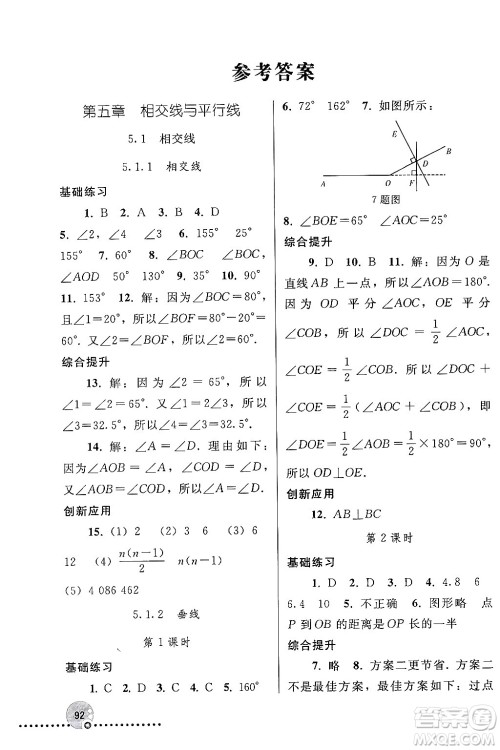 参考答案
第五章 相交线与平行线
5.1 相交线
5.1.1 相交线
基础练习
1. B 2. A 3. B 4. D
5. ∠2 ∠4 ∠3 6. 155° 25°
155° 7. 60° 8. ∠BOC ∠BOC,
∠AOD 50° 9. 135° 10. 40°
11. 153° 12. 解:因为∠BOF=80°,
且∠1=20°,所以∠BOF-∠1=60°,
所以∠2=60°.
综合提升
13. 解:因为∠2=65°,所以
∠1=∠2=65°,因为∠1=2∠3,所以
∠3=32.5°,所以∠4=∠3=32.5°.
14. 解:∠A=∠2. 理由如下:因
为∠AOB=∠A,∠AOB=∠2,所以
∠A=∠2.
创新应用
15. (1) 2 (2) 3 6 (3) 6
12 (4) n(n-1)/2 n(n-1)
(5) 4 086 462
5.1.2 垂线
第 1 课时
基础练习
1. C 2. D 3. C 4. D 5. 160°
6. 72° 162° 7. 如图所示:
E
D
A O F
7题图
8. ∠BOE=65° ∠AOC=25°
综合提升
9. D 10. B 11. 解:因为 O 是
直线 AB 上一点,所以∠AOB=180°.
因为 OD 平分∠AOC,OE 平分
∠COB,所以∠DOC=1/2∠AOC,
∠COE=1/2∠COB,所以∠DOC+
∠COE=1/2(∠AOC+∠COB),即
∠DOE=1/2∠AOB=1/2×180°=90°,
所以 OD⊥OE.
创新应用
12. AB⊥BC
第 2 课时
基础练习
1. D 2. D 3. D 4. 4.8 6
6.4 10 5. 不正确 6. 图形略 点
P 到 OB 的距离是 OP 长的一半
综合提升
7. 略 8. 方案二更节省. 方案一
不是最节省的,方案二中,因为过点
92